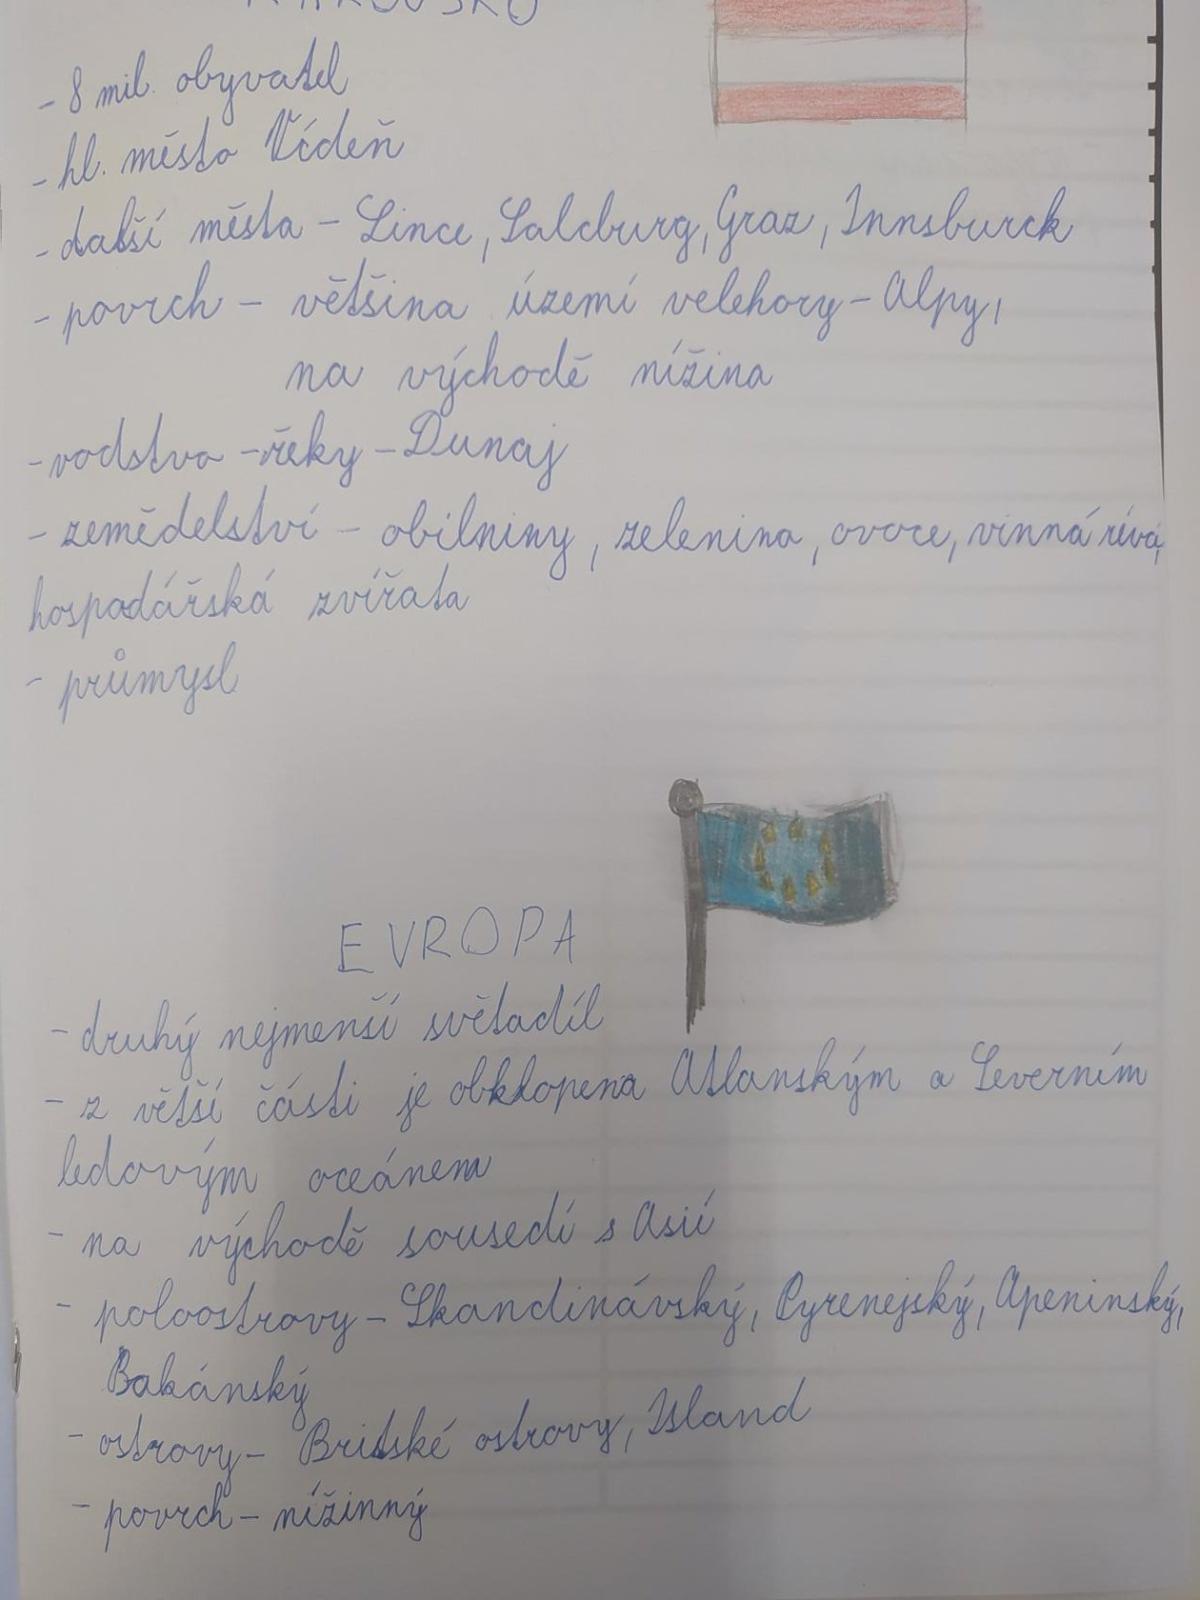 RAKOUSKO
- 8 mil. obyvatel
- hl. město Vídeň
- další města - Lince, Salcburg, Graz, Innsburck
- povrch - většina území velehory - Alpy,
na východě nížina
- vodstvo - řeky - Dunaj
- zemědelství - obilniny, zelenina, ovoce, vinná réva,
hospodářská zvířata
- průmysl
EVROPA
- druhý nejmenší světadíl
- z větší části je obklopena Atlanským a Severním
ledovým oceánem
- na východě sousedí s Asií
- poloostrovy - Skandinávský, Pyrenejský, Apeninský,
Bakánský
- ostrovy - Britské ostrovy, Island
- povrch - nížinný